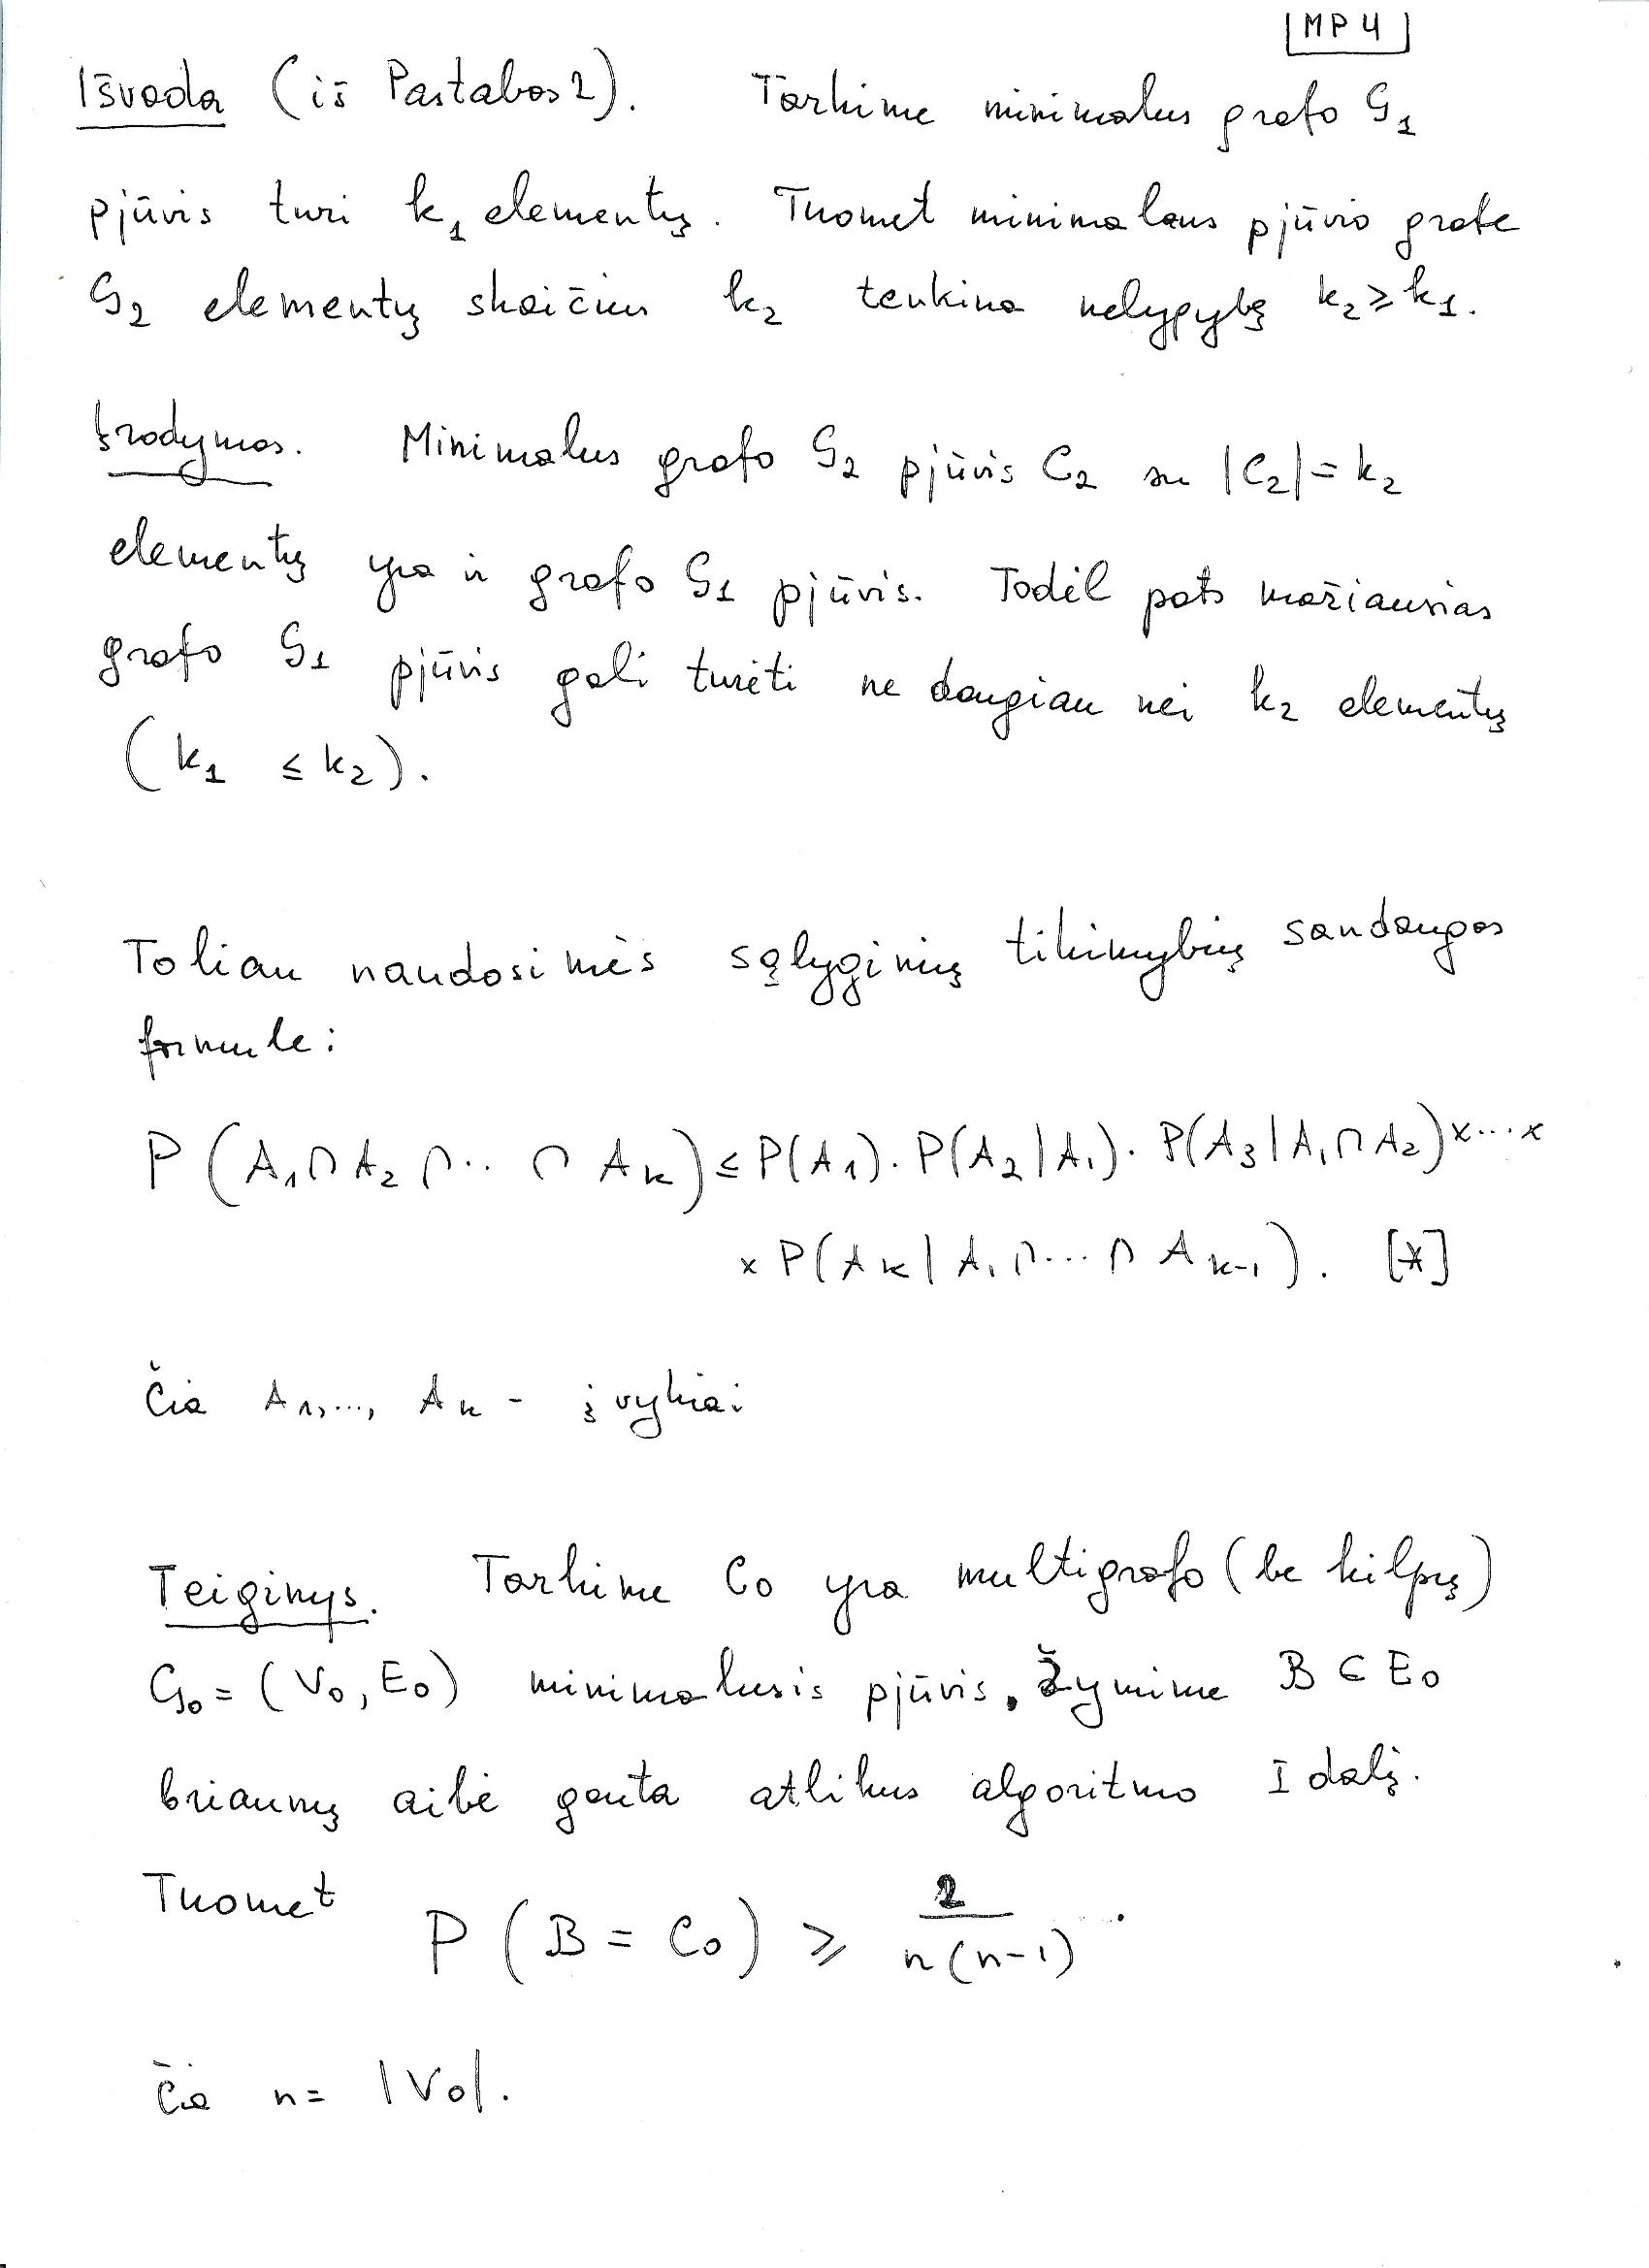 MP4
Išvada (iš Pastabos 2). Tarkime minimalus grafo G₁
pjūvis turi k₁ elementų. Tuomet minimalaus pjūvio grafe
G₂ elementų skaičius k₂ tenkina nelygybę k₂ ≥ k₁.
Įrodymas. Minimalus grafo G₂ pjūvis C₂ su |C₂| = k₂
elementų yra ir grafo G₁ pjūvis. Todėl pats mažiausias
grafo G₁ pjūvis gali turėti ne daugiau nei k₂ elementų
(k₁ ≤ k₂).
Toliau naudosimės sąlyginių tikimybių sandaugos
formule:
P(A₁∩A₂∩... ∩ Aₖ) ≤ P(A₁). P(A₂|A₁). P(A₃|A₁∩A₂)×...×
×P(Aₖ|A₁∩...∩Aₖ₋₁). [*]
Čia A₁,..., Aₖ - įvykiai
Teiginys. Tarkime C₀ yra multigrafo (be kilpų)
G₀ = (V₀, E₀) minimalusis pjūvis. Žymime B ⊂ E₀
briaunų aibė gauta atlikus algoritmo I dalį.
Tuomet P(B = C₀) ≥ 2/n(n-1).
Čia n = |V₀|.